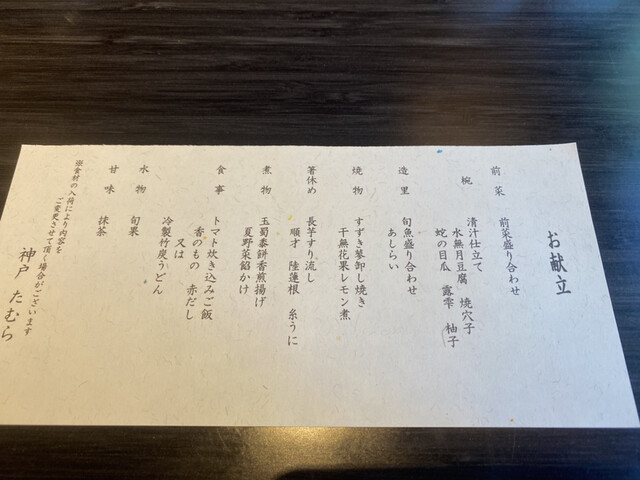 お献立
前菜 前菜盛り合わせ
椀 清汁仕立て
水無月豆腐 焼穴子
蛇の目瓜 露雫 柚子
造里 旬魚盛り合わせ
あしらい
焼物 すずき蓼卸し焼き
干無花果レモン煮
箸休め 長芋すり流し
順才 陸蓮根 糸うに
煮物 玉蜀黍餅香煎揚げ
夏野菜餡かけ
食事 トマト炊き込みご飯
香のもの 赤だし
又は
冷製竹炭うどん
水物 旬果
甘味 抹茶
※食材の入荷により内容を
ご変更させて頂く場合がございます
神戸 たむら